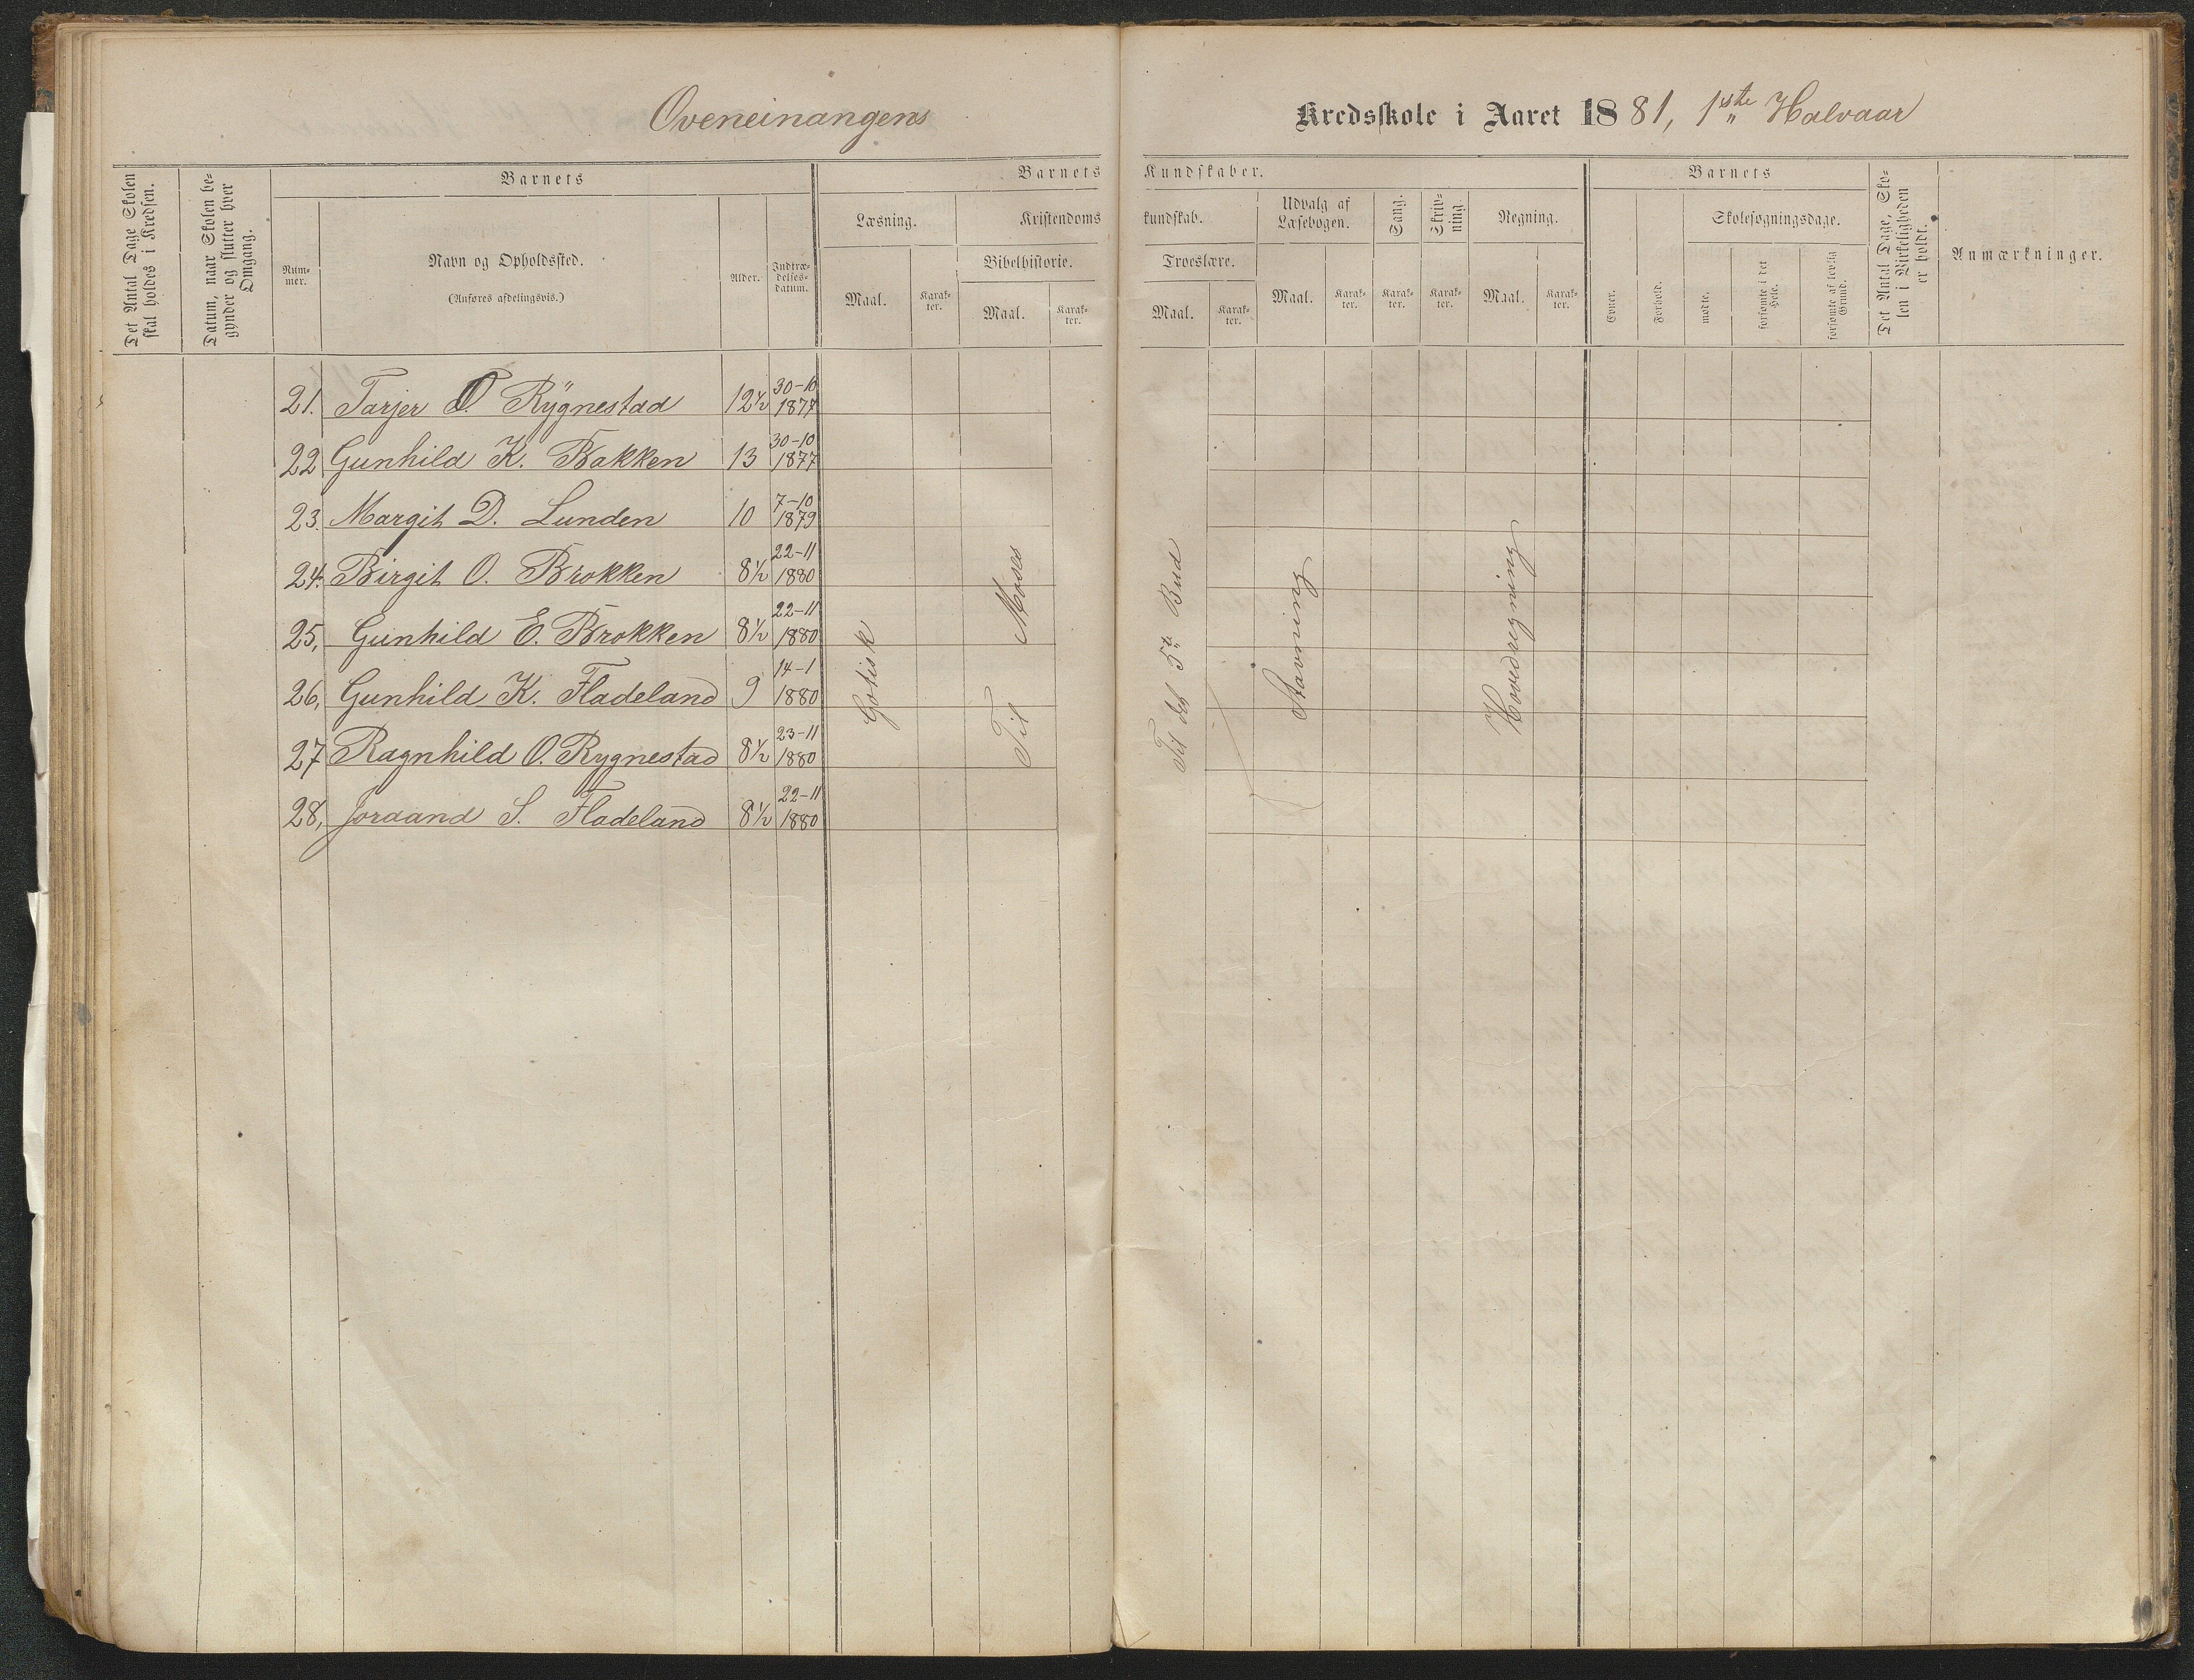 Oveneinangens
Kredsskole i Aaret 1881, 1ste Halvaar
Det Antal Dage Skolen skal holdes i Kredsen.
Datum, naar Skolen begynder og slutter hver Omgang.
Barnets
Nummer.
Navn og Opholdssted.
(Anføres afdelingsvis.)
Alder.
Indtrædelsesdatum.
Barnets Kundskaber.
Læsning.
Maal.
Karakter.
Kristendomskundskab.
Bibelhistorie.
Maal.
Karakter.
Troeslære.
Maal.
Karakter.
Udvalg af Læsebogen.
Maal.
Karakter.
Sang.
Karakter.
Skrivning.
Karakter.
Regning.
Maal.
Karakter.
Barnets
Evner.
Forhold.
Skolesøgningsdage.
mødte.
forsømte i det Hele.
forsømte af lovlig Grund.
Det Antal Dage, Skolen i Virkeligheden er holdt.
Anmærkninger.
21. Tarjer O. Rygnestad 12½ 30-10 1877
22 Gunhild K. Bakken 13 30-10 1877
23. Margit D. Lunden 10 7-10 1879
24. Birgit O. Brokken 8½ 22-11 1880
25, Gunhild E. Brokken 8½ 22-11 1880
26, Gunhild K. Fladeland 9 14-1 1880
27 Ragnhild O. Rygnestad 8½ 23-11 1880
28, Joraand S. Fladeland 8½ 22-11 1880
Gotisk
Til Moses
Til det 5te Bud
Stavning
Hovedregning